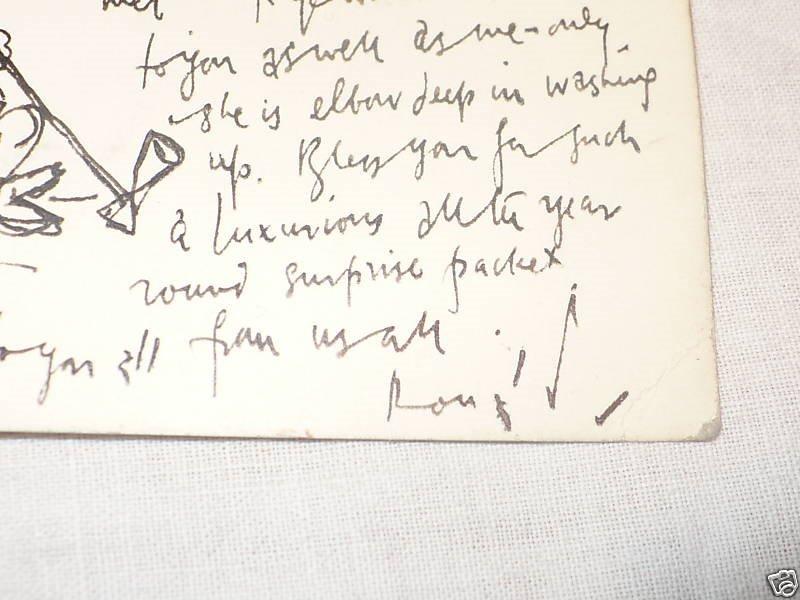 to you as well as me - only
she is elbow deep in washing
up. Bless you for such
a luxurious all the year
round surprise packet
to you all from us all.
ebY